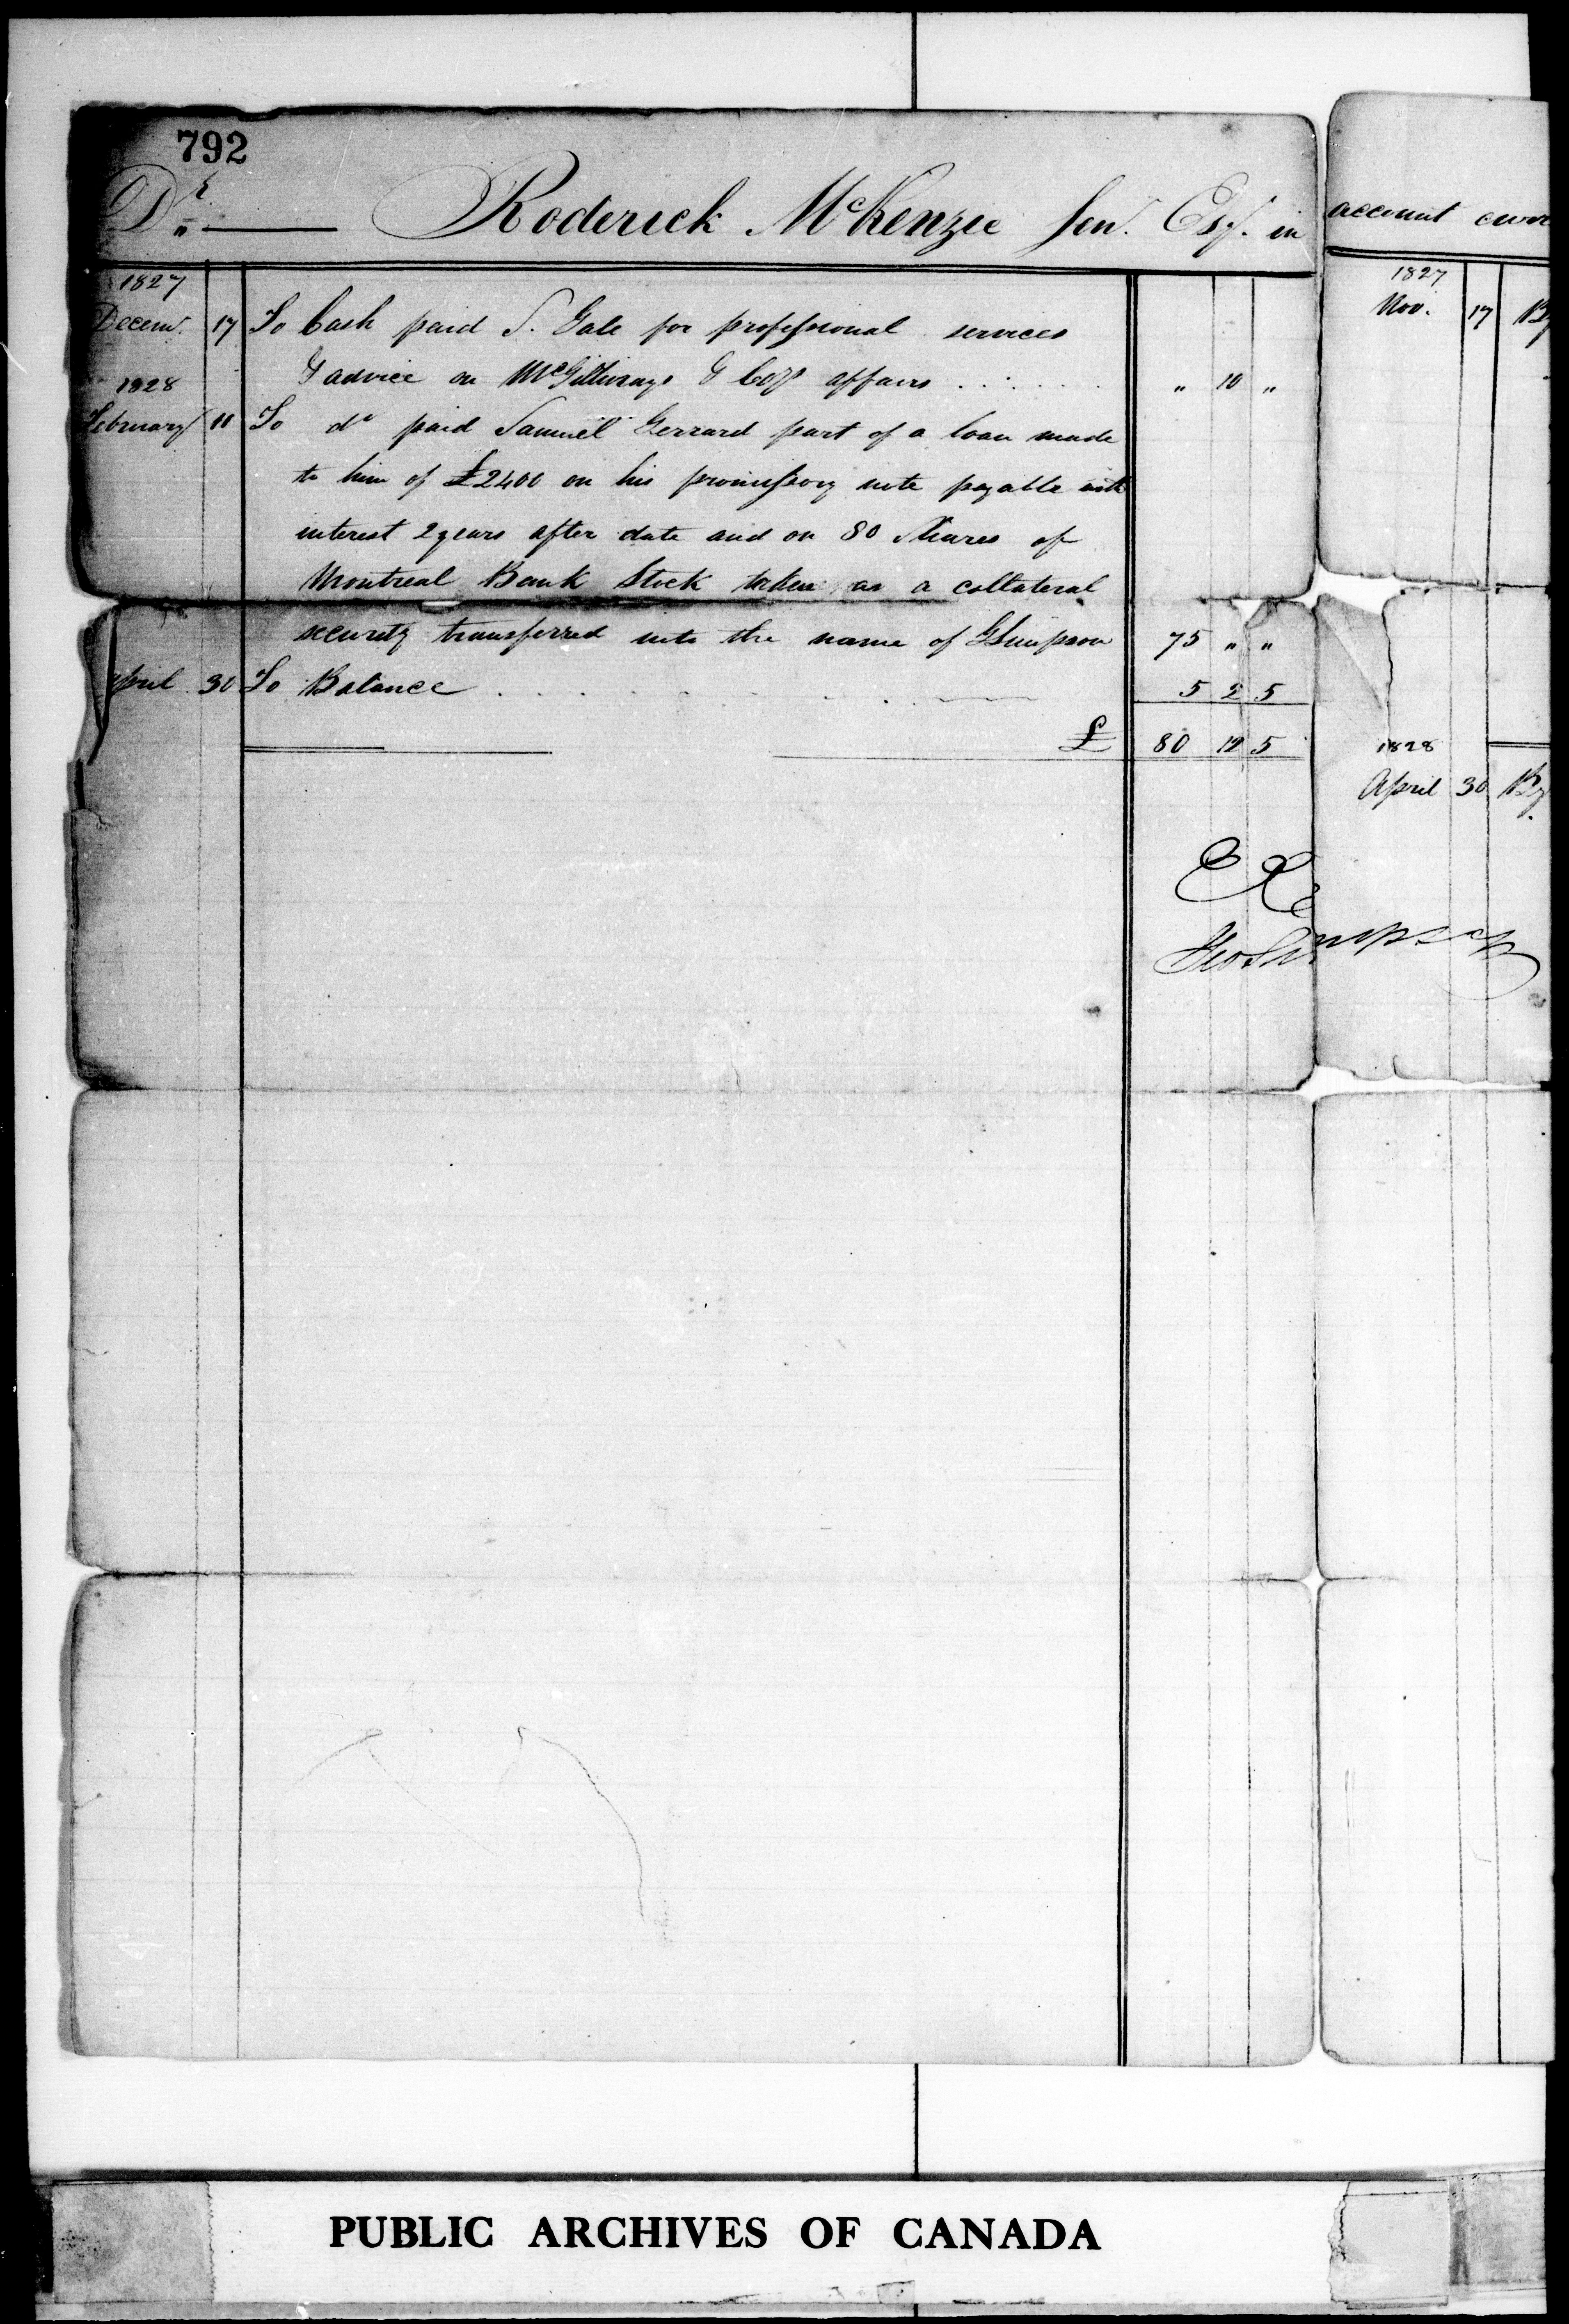 792
Dr. Roderick McKenzie Senr. Esqr. in account curre
1827
Decemr. 17 To Cash paid S. Gale for professional services
& advice on McGillivrays & Coys affairs . . . . . . " 10 "
1828
February 11 To do paid Samuel Gerrard part of a loan made
to him of £2400 on his promissory note payable with
interest 2 years after date and on 80 Shares of
Montreal Bank Stock taken as a collateral
security transferred into the name of GSimpson 75 " "
April 30 To Balance . . . . . . 5 2 5
£ 80 12 5
1827
Nov. 17 By
1828
April 30 By
EE
Geo Simpson
PUBLIC ARCHIVES OF CANADA